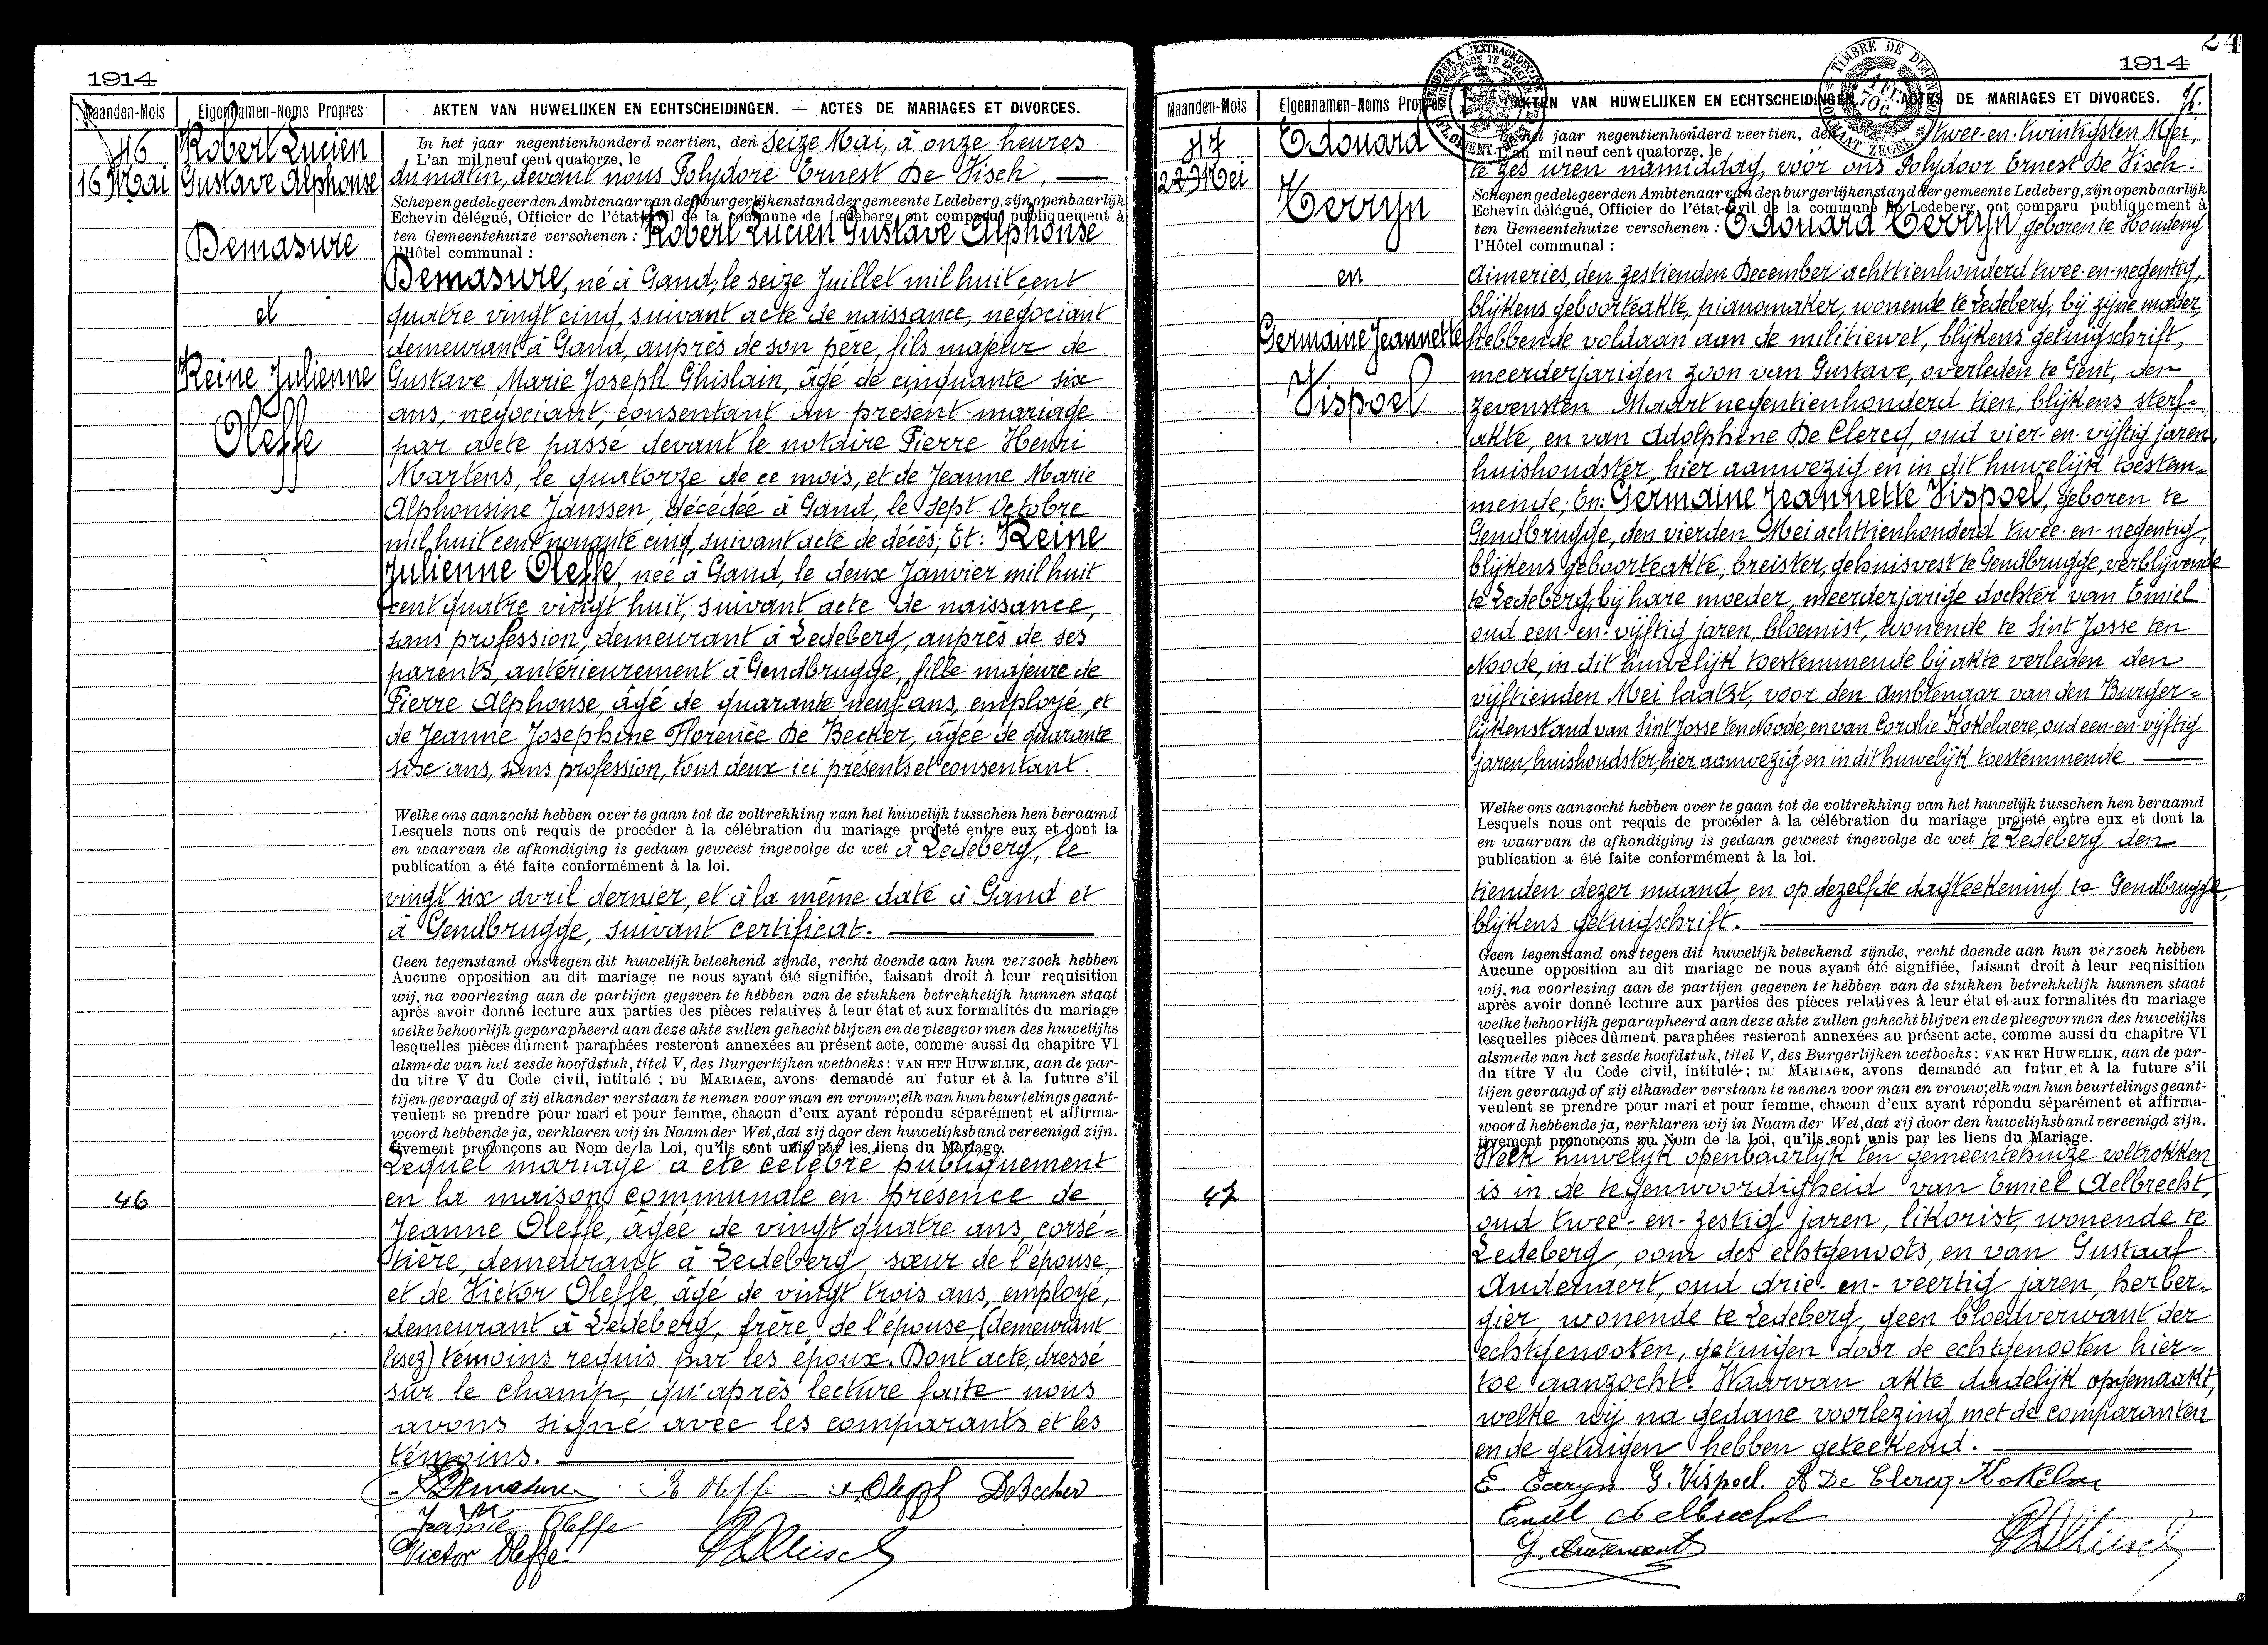 1914
Maanden-Mois Eigennamen-Noms Propres AKTEN VAN HUWELIJKEN EN ECHTSCHEIDINGEN. — ACTES DE MARIAGES ET DIVORCES.
46
16 Mai
Robert Lucien
Gustave Alphonse
Demasure
et
Reine Julienne
Oleffe
In het jaar negentienhonderd veertien, den Seize Mai, à onze heures
L'an mil neuf cent quatorze, le
du matin, devant nous Polydore Ernest De Visch, —
Schepen gedelegeerden Ambtenaar van den burgerlijken stand der gemeente Ledeberg, zijn openbaarlijk
Echevin délégué, Officier de l'état-civil de la commune de Ledeberg, ont comparu publiquement à
ten Gemeentehuize verschenen : Robert Lucien Gustave Alphonse
l'Hôtel communal :
Demasure, né à Gand, le seize Juillet mil huit cent
quatre vingt cinq, suivant acte de naissance, négociant
demeurant à Gand, auprès de son père, fils majeur de
Gustave Marie Joseph Ghislain, âgé de cinquante six
ans, négociant, consentant au présent mariage
par acte passé devant le notaire Pierre Henri
Martens, le quatorze de ce mois, et de Jeanne Marie
Alphonsine Janssen, décédée à Gand, le sept Octobre
mil huit cent nonante cinq, suivant acte de décès; Et: Reine
Julienne Oleffe, née à Gand, le deux Janvier mil huit
cent quatre vingt huit, suivant acte de naissance,
sans profession, demeurant à Ledeberg, auprès de ses
parents, antérieurement à Gendbrugge, fille majeure de
Pierre Alphonse, âgé de quarante neuf ans, employé, et
de Jeanne Josephine Florence De Becker, âgée de quarante
six ans, sans profession, tous deux ici présents et consentant.
Welke ons aanzocht hebben over te gaan tot de voltrekking van het huwelijk tusschen hen beraamd
Lesquels nous ont requis de procéder à la célébration du mariage projeté entre eux et dont la
en waarvan de afkondiging is gedaan geweest ingevolge de wet à Ledeberg, le
publication a été faite conformément à la loi.
vingt six avril dernier, et à la même date à Gand et
à Gendbrugge, suivant certificat. —
Geen tegenstand ons tegen dit huwelijk beteekend zijnde, recht doende aan hun verzoek hebben
Aucune opposition au dit mariage ne nous ayant été signifiée, faisant droit à leur requisition
wij, na voorlezing aan de partijen gegeven te hebben van de stukken betrekkelijk hunnen staat
après avoir donné lecture aux parties des pièces relatives à leur état et aux formalités du mariage
welke behoorlijk geparapheerd aan deze akte zullen gehecht blijven en de pleegvormen des huwelijks
lesquelles pièces dûment paraphées resteront annexées au présent acte, comme aussi du chapitre VI
alsmede van het zesde hoofdstuk, titel V, des Burgerlijken wetboeks : VAN HET HUWELIJK, aan de par-
du titre V du Code civil, intitulé : DU MARIAGE, avons demandé au futur et à la future s'il
tijen gevraagd of zij elkander verstaan te nemen voor man en vrouw; elk van hun beurtelings geant-
veulent se prendre pour mari et pour femme, chacun d'eux ayant répondu séparément et affirma-
woord hebbende ja, verklaren wij in Naam der Wet, dat zij door den huwelijksband vereenigd zijn.
tivement prononçons au Nom de la Loi, qu'ils sont unis par les liens du Mariage.
46
Lequel mariage a été célébré publiquement
en la maison communale en présence de
Jeanne Oleffe, âgée de vingt quatre ans, corsé-
tière, demeurant à Ledeberg, sœur de l'épouse,
et de Victor Oleffe, âgé de vingt trois ans, employé,
demeurant à Ledeberg, frère de l'épouse, (demeurant
lisez) témoins requis par les époux. Dont acte, dressé
sur le champ, qu'après lecture faite nous
avons signé avec les comparants et les
témoins. —
R Demasure R Oleffe A Oleffe DeBecker
Jeanne Oleffe
Victor Oleffe
24
1914
Maanden-Mois Eigennamen-Noms Propres AKTEN VAN HUWELIJKEN EN ECHTSCHEIDINGEN. — ACTES DE MARIAGES ET DIVORCES.
TIMBRE DE DIMENSION
47
22 Mei
Edouard
Terryn
en
Germaine Jeannette
Vispoel
In het jaar negentienhonderd veertien, den twee-en-twintigsten Mei,
L'an mil neuf cent quatorze, le
te zes uren namiddag, vóór ons Polydoor Ernest De Visch.
Schepen gedelegeerden Ambtenaar van den burgerlijken stand der gemeente Ledeberg, zijn openbaarlijk
Echevin délégué, Officier de l'état-civil de la commune de Ledeberg, ont comparu publiquement à
ten Gemeentehuize verschenen : Edouard Terryn, geboren te Houdeng
l'Hôtel communal :
Aimeries, den zestienden December achttienhonderd twee-en-negentig,
blijkens geboorteakte, pianomaker, wonende te Ledeberg, bij zijne moeder,
hebbende voldaan aan de militiewet, blijkens getuigschrift,
meerderjarigen zoon van Gustave, overleden te Gent, den
zevensten Maart negentienhonderd tien, blijkens sterf-
akte, en van Adolphine De Clercq, oud vier-en-vijftig jaren,
huishoudster, hier aanwezig en in dit huwelijk toestem-
mende; En: Germaine Jeannette Vispoel, geboren te
Gendbrugge, den vierden Mei achttienhonderd twee-en-negentig,
blijkens geboorteakte, breister, gehuisvest te Gendbrugge, verblijvende
te Ledeberg, bij hare moeder, meerderjarige dochter van Emiel
oud een-en-vijftig jaren, bloemist, wonende te Sint Josse ten
Noode, in dit huwelijk toestemmende bij akte verleden den
vijftienden Mei laatst, voor den Ambtenaar van den Burger-
lijkenstand van Sint Josse ten Noode, en van Coralie Kokelaere, oud een-en-vijftig
jaren, huishoudster, hier aanwezig en in dit huwelijk toestemmende. —
Welke ons aanzocht hebben over te gaan tot de voltrekking van het huwelijk tusschen hen beraamd
Lesquels nous ont requis de procéder à la célébration du mariage projeté entre eux et dont la
en waarvan de afkondiging is gedaan geweest ingevolge de wet te Ledeberg, den
publication a été faite conformément à la loi.
tienden dezer maand, en op dezelfde dagteekening te Gendbrugge,
blijkens getuigschrift. —
Geen tegenstand ons tegen dit huwelijk beteekend zijnde, recht doende aan hun verzoek hebben
Aucune opposition au dit mariage ne nous ayant été signifiée, faisant droit à leur requisition
wij, na voorlezing aan de partijen gegeven te hebben van de stukken betrekkelijk hunnen staat
après avoir donné lecture aux parties des pièces relatives à leur état et aux formalités du mariage
welke behoorlijk geparapheerd aan deze akte zullen gehecht blijven en de pleegvormen des huwelijks
lesquelles pièces dûment paraphées resteront annexées au présent acte, comme aussi du chapitre VI
alsmede van het zesde hoofdstuk, titel V, des Burgerlijken wetboeks : VAN HET HUWELIJK, aan de par-
du titre V du Code civil, intitulé : DU MARIAGE, avons demandé au futur et à la future s'il
tijen gevraagd of zij elkander verstaan te nemen voor man en vrouw; elk van hun beurtelings geant-
veulent se prendre pour mari et pour femme, chacun d'eux ayant répondu séparément et affirma-
woord hebbende ja, verklaren wij in Naam der Wet, dat zij door den huwelijksband vereenigd zijn.
tivement prononçons au Nom de la Loi, qu'ils sont unis par les liens du Mariage.
47
Welk huwelijk openbaarlijk ten gemeentehuize voltrokken
is in de tegenwoordigheid van Emiel Aelbrecht,
oud twee-en-zestig jaren, likorist, wonende te
Ledeberg, oom des echtgenoots, en van Gustaaf
Audenaert, oud drie-en-veertig jaren, herber-
gier, wonende te Ledeberg, geen bloedverwant der
echtgenooten, getuigen door de echtgenooten hier-
toe aanzocht. Waarvan akte dadelijk opgemaakt,
welke wij na gedane voorlezing met de comparanten
en de getuigen hebben geteekend. —
E. Terryn. G. Vispoel. A De Clercq
Emiel Aelbrecht
G. Audenaert